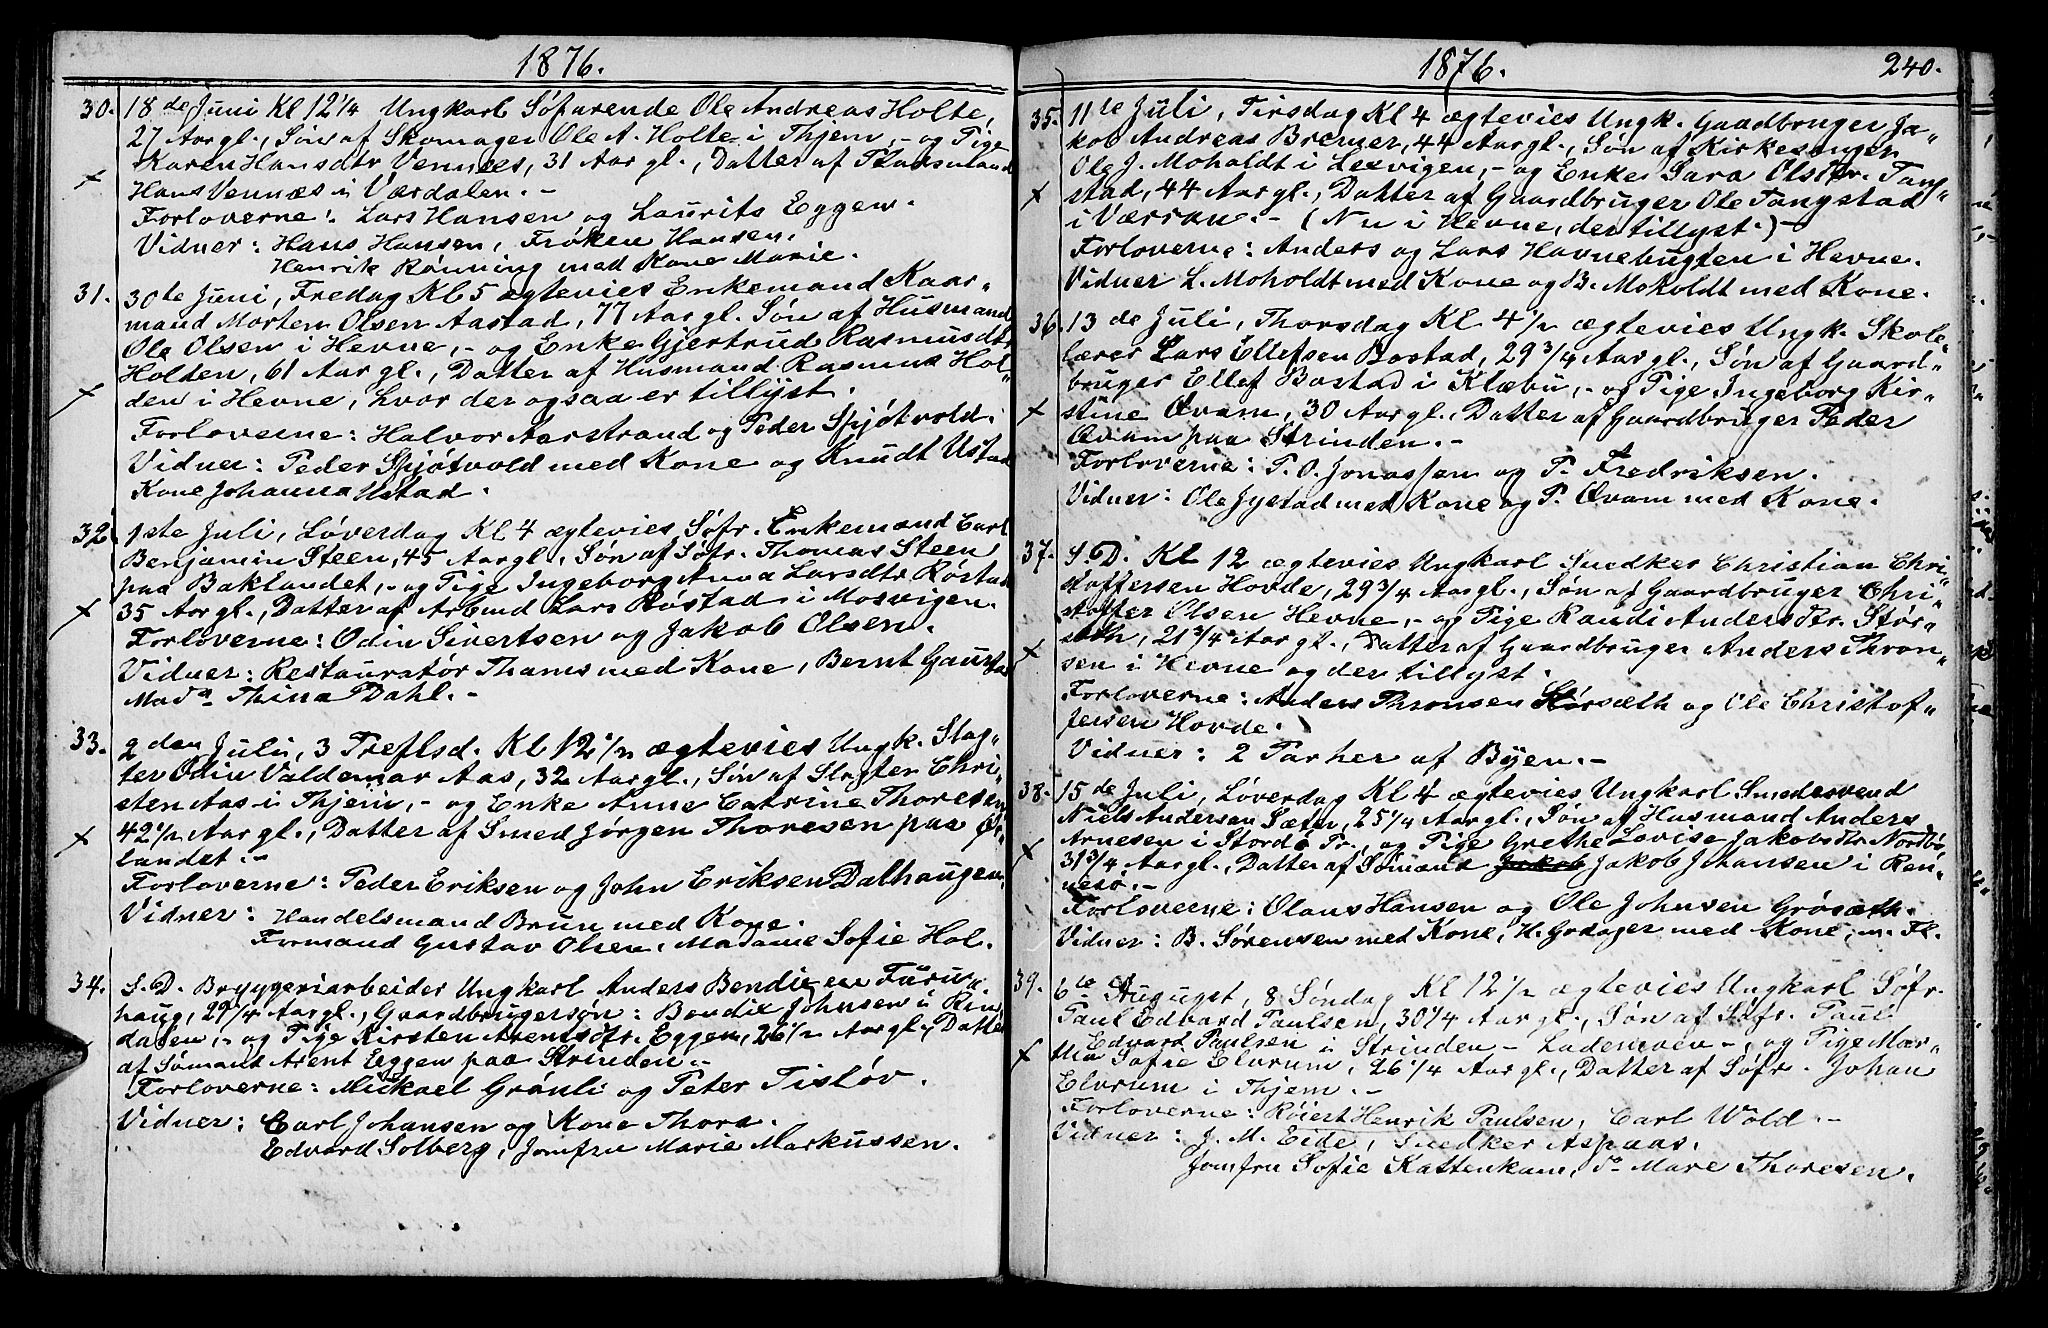 1876.
30. 18de Juni Kl 12 1/4 Ungkarl Søfarende Ole Andreas Holte,
27 Aar gl., Søn af Skomager Ole A. Holte i Thjem, og Pige
Karen Hansdtr Vennæs, 31 Aar gl., Datter af Pladsmand
Hans Vennæs i Værdalen. -
Forloverne: Lars Hansen og Laurits Eggen.
Vidner: Hans Hansen, Frøken Hansen,
Henrik Rønning med Kone Marie.
31. 30te Juni, Fredag Kl 5 ægtevies Enkemand Kaar-
mand Morten Olsen Aastad, 77 Aar gl. Søn af Husmand
Ole Olsen i Hevne, - og Enke Gjertrud Rasmusdtr
Holten, 61 Aar gl., Datter af Husmand Rasmus Hol-
den i Hevne, hvor der ogsaa er tillyst.
Forloverne: Halvor Aarstrand og Peder Spjøtvold.
Vidner: Peder Spjøtvold med Kone og Knudt Ustad
Kone Johanna Ustad.
32. 1ste Juli, Løverdag Kl 4 ægtevies Søfr. Enkemand Carl
Benjamin Steen, 45 Aar gl., Søn af Søfr. Thomas Steen
paa Baklandet, - og Pige Ingeborg Anna Larsdtr Røstad
35 Aar gl., Datter af Arbmd Lars Røstad i Mosvigen.
Forloverne: Odin Sivertsen og Jakob Olsen.
Vidner: Restauratør Thams med Kone, Bernt Gaustad
Mada Thina Dahl. -
33. 2den Juli, 3 Treflsd. Kl 12 1/2 ægtevies Ungk. Slag-
ter Odin Valdemar Aas, 32 Aar gl., Søn af Slagter Chri-
sten Aas i Thjem, - og Enke Anne Catrine Thoresen
42 1/2 Aar gl., Datter af Smed Jørgen Thoresen paa Ør-
landet. -
Forloverne: Peder Eriksen og John Eriksen Dalhaugen,
Vidner: Handelsmand Brun med Kone.
Formand Gustav Olsen, Madame Sofie Hol.
34. S. D. Bryggeriarbeider Ungkarl Anders Bendixen Furu-
haug, 29 1/4 Aar gl., Gaardbrugersøn: Bendix Johnsen i Rin
dalen, - og Pige Kirsten Arentsdtr. Eggen, 26 1/2 Aar gl., Datter
af Sømand Arent Eggen paa Strinden. -
Forloverne: Mickael Grønli og Peter Tisløv.
Vidner: Carl Johansen og Kone Thora.
Edvard Solberg, Jomfru Marie Markussen.
1876. 240.
35. 11te Juli, Tirsdag Kl 4 ægtevies Ungk. Gaardbruger Ja-
kob Andreas Bremer, 44 Aar gl., Søn af Kirkesanger
Ole J. Moholdt i Lexvigen, - og Enke Sara Olsdtr. Tang-
stad, 44 Aar gl., Datter af Gaardbruger Ole Tangstad
i Værran. - (Nu i Hevne, der tillyst.) -
Forloverne: Anders og Lars Havnebugten i Hevne.
Vidner L. Moholdt med Kone og B. Moholdt med Kone.
36. 13de Juli, Thorsdag Kl 4 1/2 ægtevies Ungk. Skole-
lærer Lars Ellefsen Bostad, 29 3/4 Aar gl., Søn af Gaard-
bruger Ellef Bostad i Klæbu, - og Pige Ingeborg Kir-
stine Qvam, 30 Aar gl., Datter af Gaardbruger Peder
Qvam paa Strinden. -
Forloverne: P. O. Jonassen og P. Fredriksen.
Vidner: Ole Jystad med Kone og P. Qvam med Kone.
37. S. D. Kl 12 ægtevies Ungkarl Snedker Christian Chri-
stoffersen Hovde, 29 3/4 Aar gl., Søn af Gaardbruger Chri-
stoffer Olsen Hevne, - og Pige Randi Andersdtr. Stør-
sæth, 21 3/4 Aar gl., Datter af Gaardbruger Anders Thron-
sen i Hevne og der tillyst.
Forloverne: Anders Thronsen Størsæth og Ole Christof-
fersen Hovde.
Vidner: 2 Parher af Byen. -
38. 15de Juli, Løverdag Kl 4 ægtevies Ungkarl Smedesvend
Niels Andersen Sæter, 25 1/4 Aar gl., Søn af Husmand Anders
Arnesen i Stordø Pr., og Pige Grethe Lovise Jakobsdtr Nordbø,
31 3/4 Aar gl., Datter af Sømand Jakob Jakob Johansen i Ren-
nesø. -
Forloverne: Olaus Hansen og Ole Johnsen Grøsæth.
Vidner: B. Sørensen med Kone, H. Godager med Kone, m. Fl.
39. 6te August, 8 Søndag Kl 12 1/2 ægtevies Ungkarl Søfr.
Paul Edvard Paulsen, 30 1/4 Aar gl., Søn af Søfr. Paul
Edvard Paulsen i Strinden - Lademoen -, og Pige Mar-
tha Sofie Elvrum, 26 1/4 Aar gl., Datter af Søfr. Johan
Elvrum i Thjem. -
Forloverne: Røiert Henrik Paulsen, Carl Wold. -
Vidner: J. M. Eide, Snedker Aspaas.
Jomfru Sofie Kattenkam, Do Mare Thoresen.